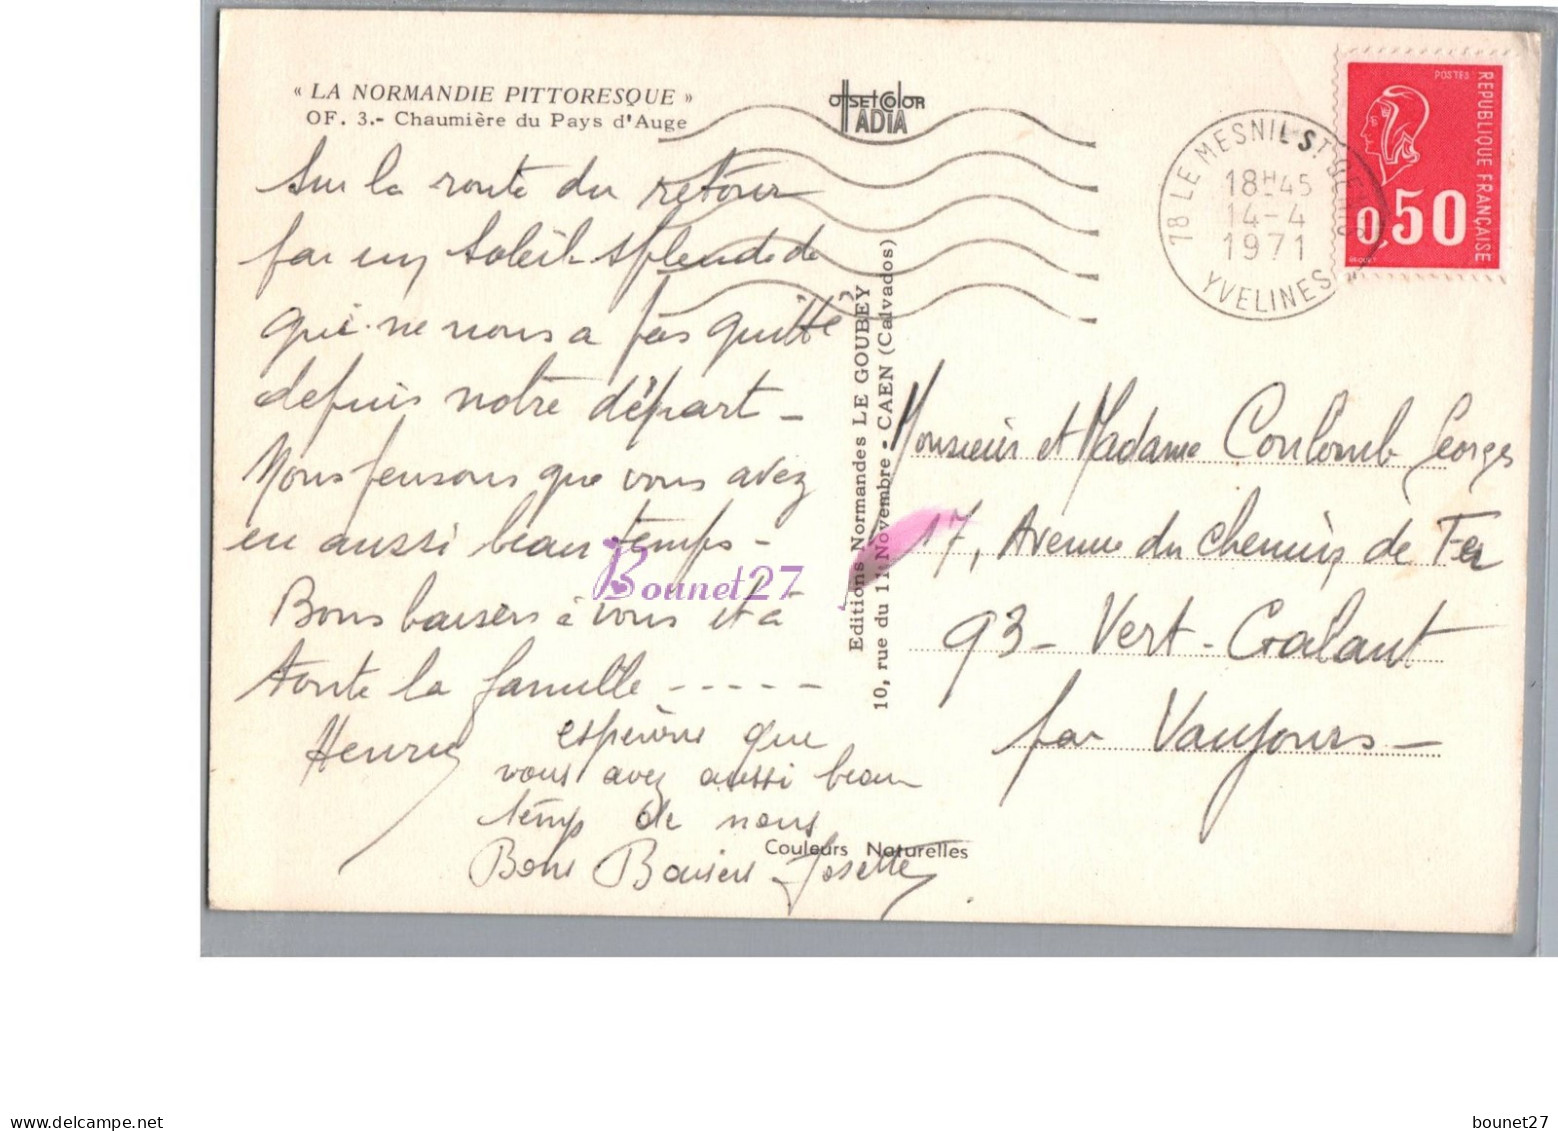 « LA NORMANDIE PITTORESQUE »
OF. 3.- Chaumière du Pays d'Auge
OffSET Color
ADIA
78 LE MESNIL ST DENIS
18H45
14-4
1971
YVELINES
POSTES
REPUBLIQUE FRANÇAISE
0,50
Sur la route du retour
par un soleil splendide
qui ne nous a pas quitté
depuis notre départ -
Nous pensons que vous avez
eu aussi beau temps -
Bons baisers à vous et à
toute la famille - - - - -
Henry
espérons que
vous avez aussi beau
temp de nous
Bons Baisers Josette
Editions Normandes LE GOUBEY
10, rue du 11 Novembre - CAEN (Calvados)
Monsieur et Madame Coulomb Georges
17, Avenue du Chemin de Fer
93 - Vert-Galant
par Vaujours -
Couleurs Naturelles
Bounet27
bounet27